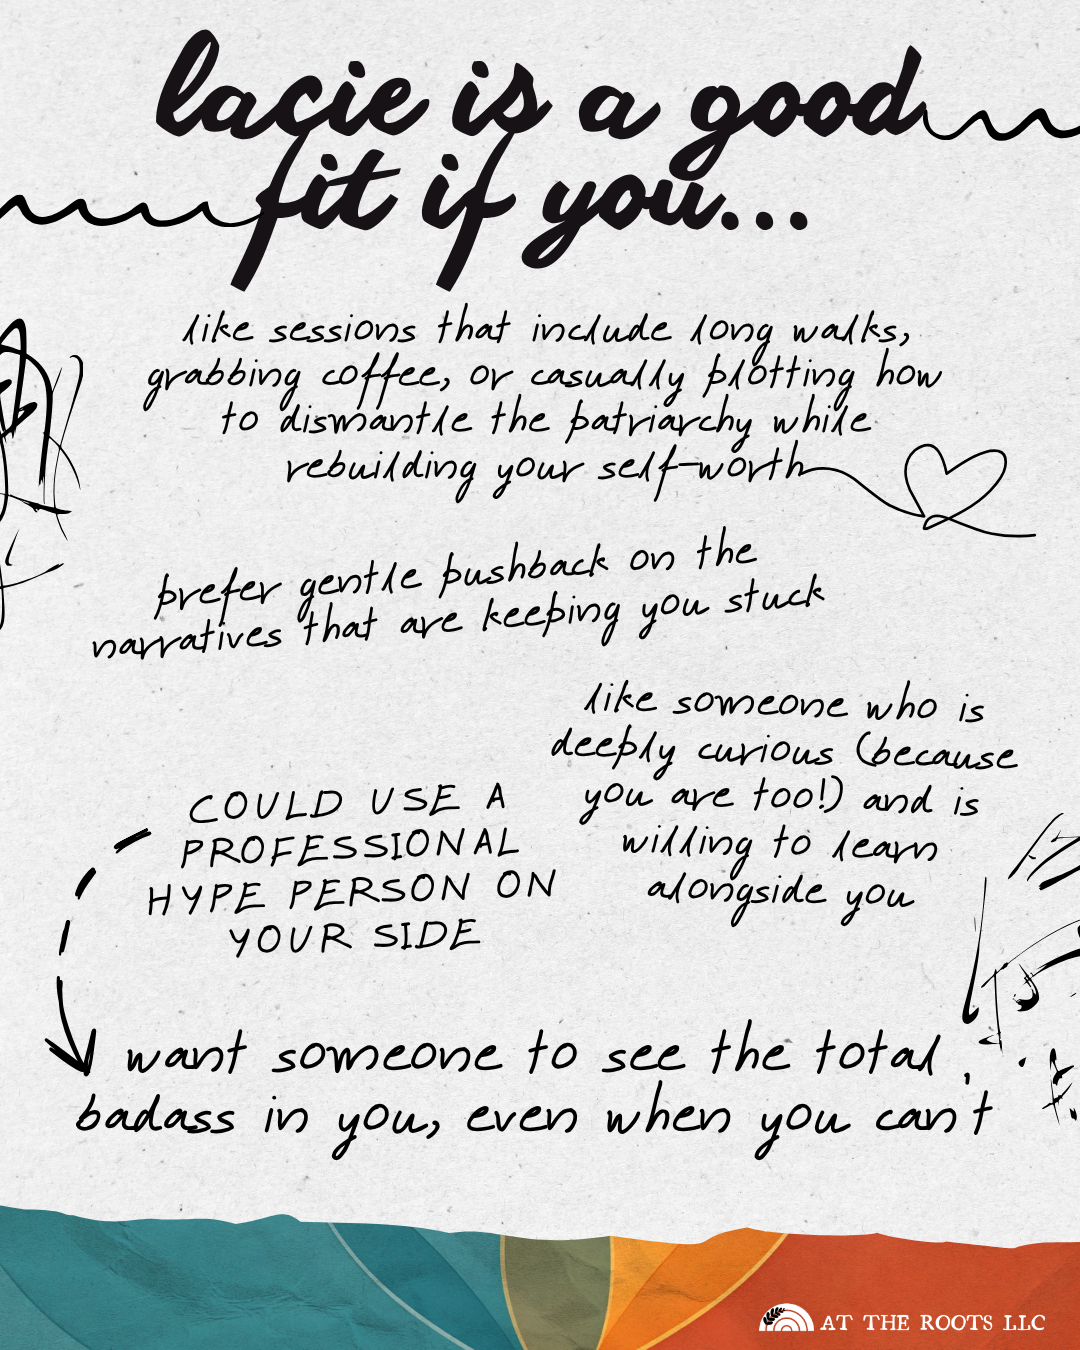 lacie is a good
fit if you...
like sessions that include long walks,
grabbing coffee, or casually plotting how
to dismantle the patriarchy while
rebuilding your self-worth
prefer gentle pushback on the
narratives that are keeping you stuck
like someone who is
deeply curious (because
you are too!) and is
willing to learn
alongside you
COULD USE A
PROFESSIONAL
HYPE PERSON ON
YOUR SIDE
want someone to see the total
badass in you, even when you can't
AT THE ROOTS LLC